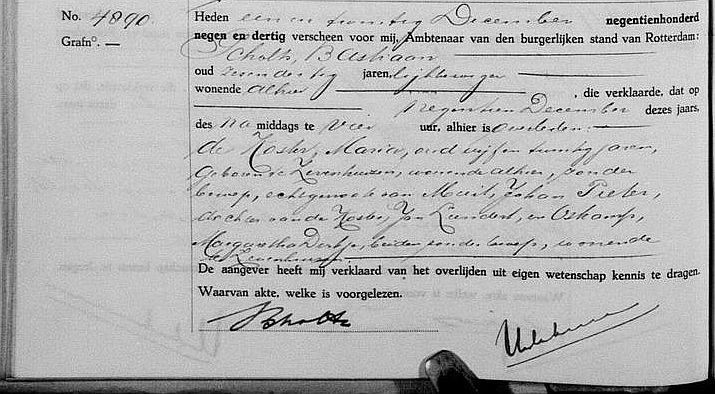 No. 4890
Heden een en twintig December negentienhonderd
negen en dertig verscheen voor mij, Ambtenaar van den burgerlijken stand van Rotterdam:
Grafno. —
Scholts, Bastiaan
oud zeven dertig jaren,
wonende alhier , die verklaarde, dat op
negentien December dezes jaars,
des na middags te vier uur, alhier is overleden:
de Koster, Maria, oud vijf en twintig jaren,
geboren te Zevenhuizen, wonende alhier, zonder
beroep, echtgenoote van Johan Pieter,
dochter van de Koster, Jan Leendert, en Oskamp,
Margaretha Dertje, beiden zonder beroep, wonende
te Zevenhuizen.
De aangever heeft mij verklaard van het overlijden uit eigen wetenschap kennis te dragen.
Waarvan akte, welke is voorgelezen.